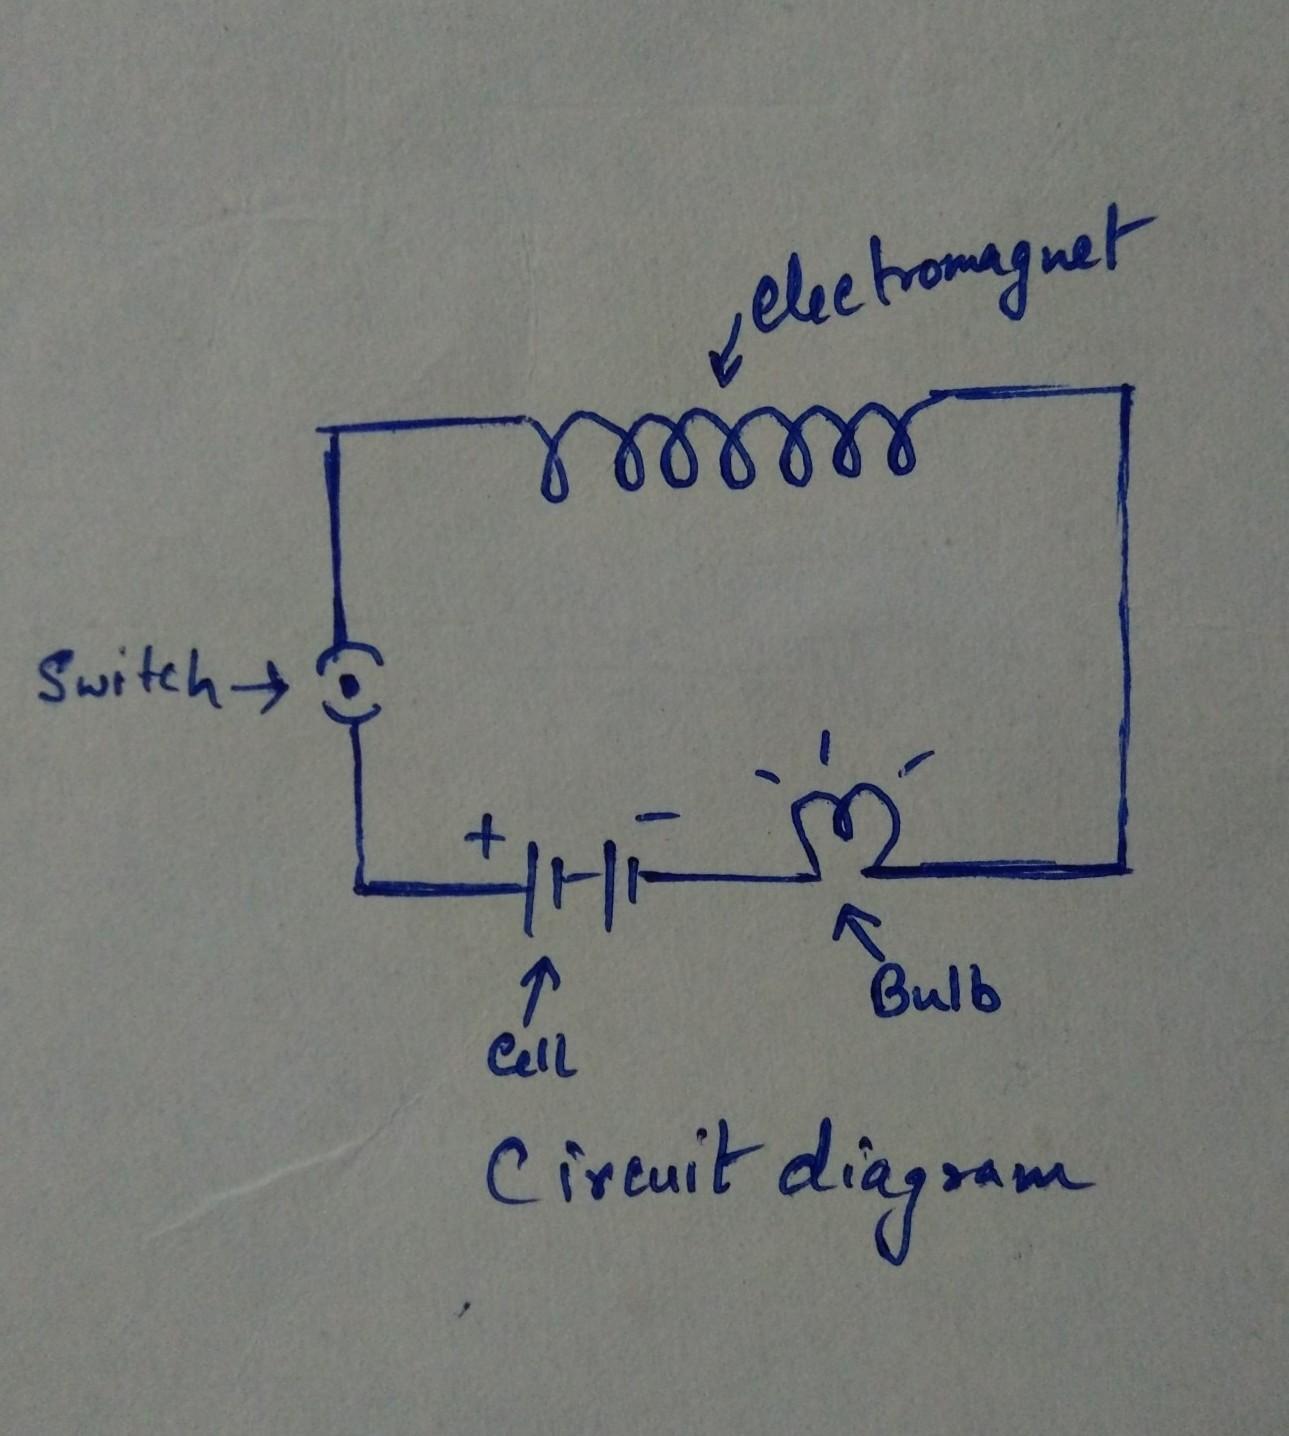 electromagnet
Switch
+
-
Bulb
Cell
Circuit diagram